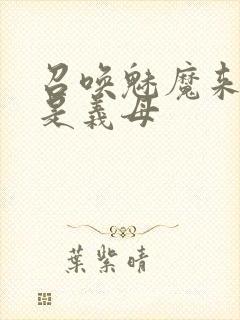 召唤魅魔来
是義母
葉紫晴